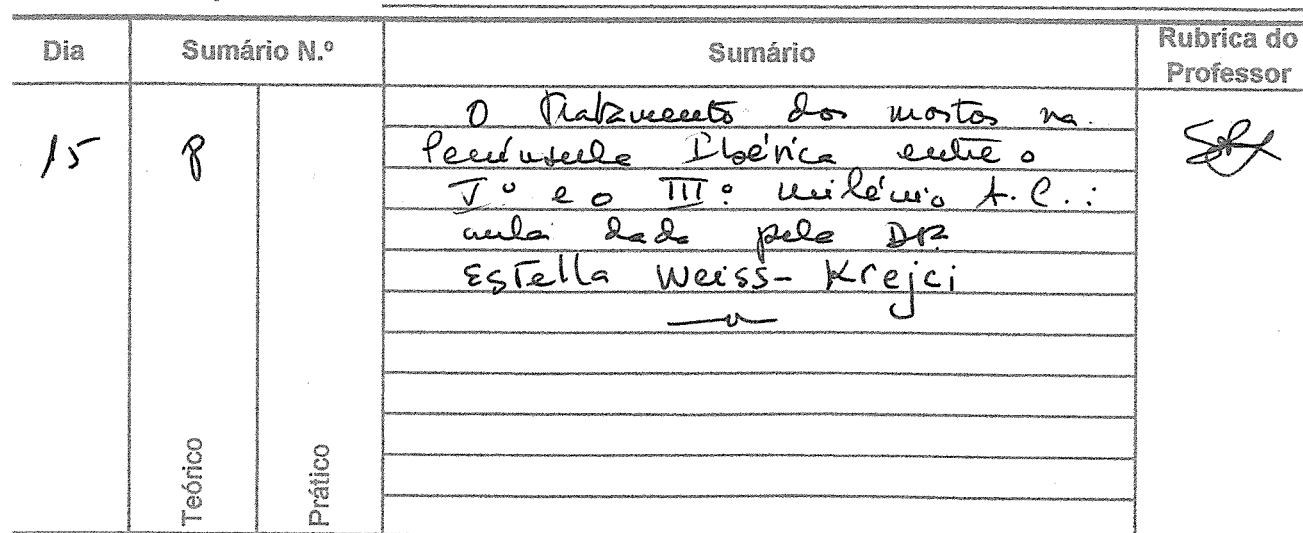 Dia Sumário N.º Sumário Rubrica do Professor
15 8
O Tratamento dos mortos na
Península Ibérica entre o
Vº e o IIIº milénio A.C.:
aula dada pela Drª
Estella Weiss-Krejci
Teórico
Prático